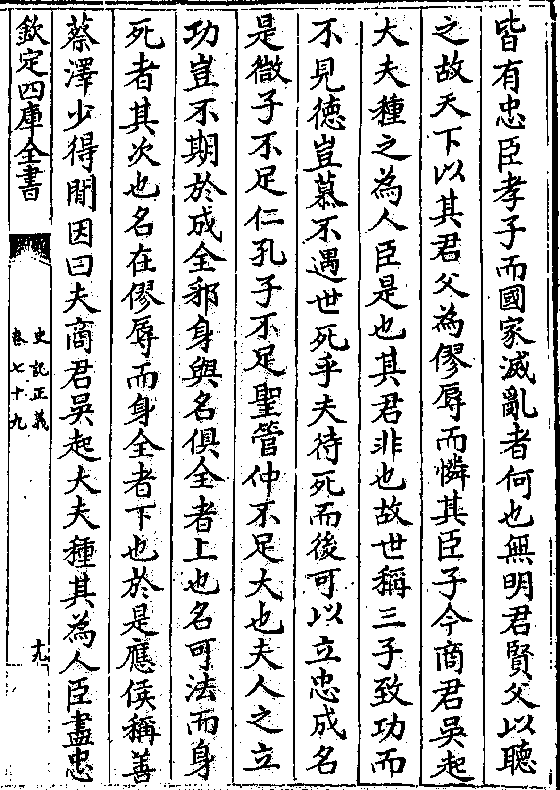 皆有忠臣孝子而國家滅亂者何也無明君賢父以聽
之故天下以其君父為僇辱而憐其臣子今商君吳起
大夫種之為人臣是也其君非也故世稱三子致功而
不見德豈慕不遇世死乎夫待死而後可以立忠成名
是微子不足仁孔子不足聖管仲不足大也夫人之立
功豈不期於成全邪身與名俱全者上也名可法而身
死者其次也名在僇辱而身全者下也於是應侯稱善
蔡澤少得閒因曰夫商君吳起大夫種其為人臣盡忠
欽定四庫全書
史記正義
卷七十九
十九